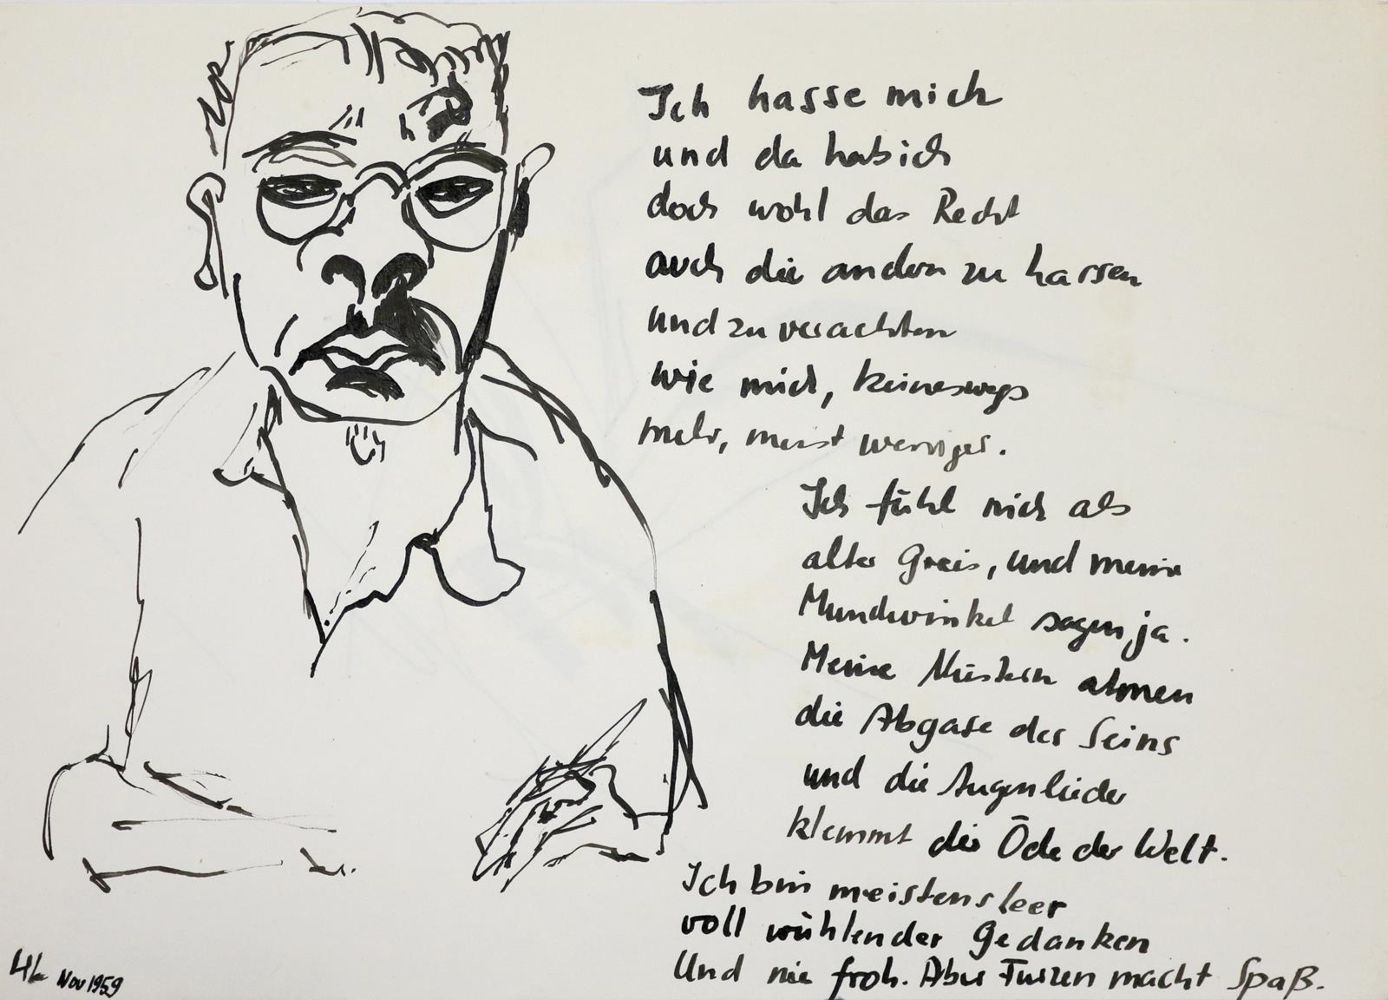 Ich hasse mich
und da hab ich
doch wohl das Recht
auch die andern zu hassen
und zu verachten
wie mich, keineswegs
mehr, meist weniger.
Ich fühl mich als
alter Greis, und meine
Mundwinkel sagen ja.
Meine Nüstern atmen
die Abgase des Seins
und die Augenlieder
klemmt die Öde der Welt.
Ich bin meistens leer
voll wühlender Gedanken
Und nie froh. Aber Furzen macht Spaß.
HL Nov 1959